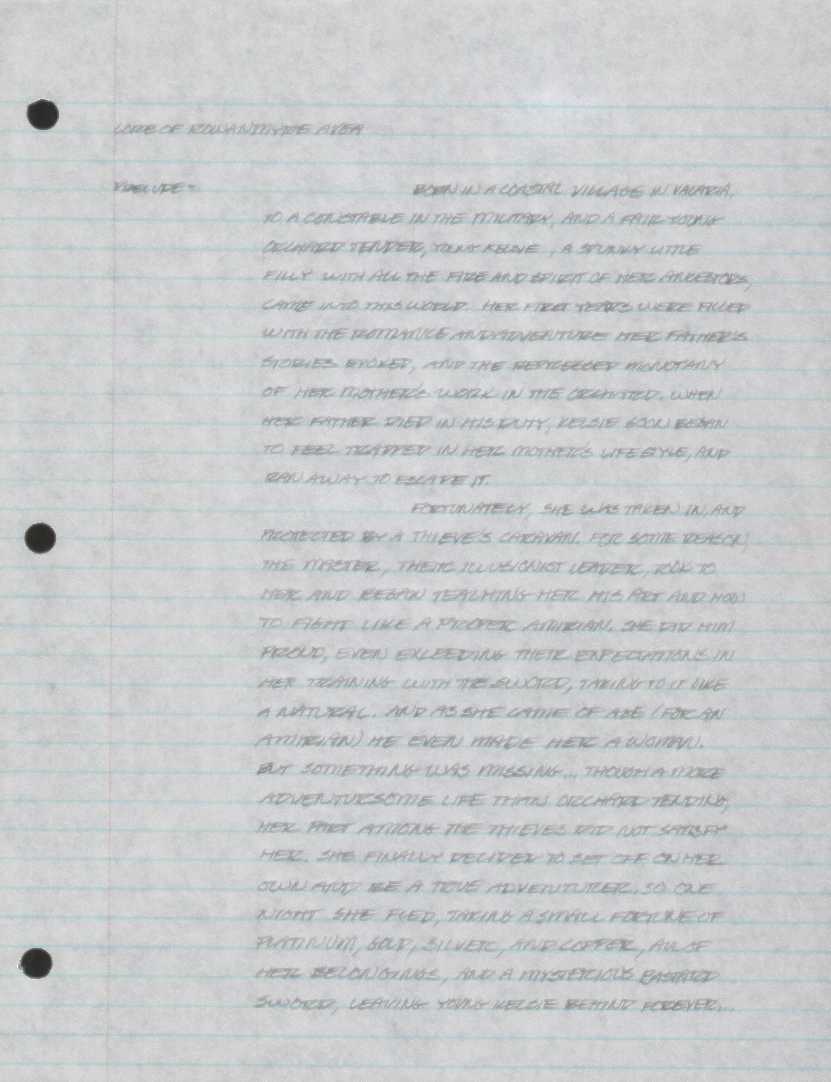 LORE OF ROWANMYRE AVEA
PRELUDE- BORN IN A COASTAL VILLAGE IN VALARIA,
TO A CONSTABLE IN THE MILITARY, AND A FAIR YOUNG
ORCHARD TENDER, YOUNG KELSIE, A SPUNKY LITTLE
FILLY WITH ALL THE FIRE AND SPIRIT OF HER ANCESTORS,
CAME INTO THIS WORLD. HER FIRST YEARS WERE FILLED
WITH THE ROMANCE AND ADVENTURE HER FATHER'S
STORIES EVOKED, AND THE REPRESSED MONOTANY
OF HER MOTHER'S WORK IN THE ORCHARD. WHEN
HER FATHER DIED IN HIS DUTY, KELSIE SOON BEGAN
TO FEEL TRAPPED IN HER MOTHER'S LIFESTYLE, AND
RAN AWAY TO ESCAPE IT.
FORTUNATELY, SHE WAS TAKEN IN, AND
PROTECTED BY A THIEVE'S CARAVAN. FOR SOME REASON,
THE MASTER, THEIR ILLUSIONIST LEADER, TOOK TO
HER AND BEGAN TEACHING HER HIS ART AND HOW
TO FIGHT LIKE A PROPER AMIRIAN. SHE DID HIM
PROUD, EVEN EXCEEDING THEIR EXPECTATIONS IN
HER TRAINING WITH THE SWORD, TAKING TO IT LIKE
A NATURAL. AND AS SHE CAME OF AGE (FOR AN
AMIRIAN) HE EVEN MADE HER A WOMAN.
BUT SOMETHING WAS MISSING... THOUGH A MORE
ADVENTURSOME LIFE THAN ORCHARD TENDING,
HER PART AMONG THE THIEVES DID NOT SATISFY
HER. SHE FINALLY DECIDED TO SET OFF ON HER
OWN AND BE A TRUE ADVENTURER. SO ONE
NIGHT SHE FLED, TAKING A SMALL FORTUNE OF
PLATINUM, GOLD, SILVER, AND COPPER, ALL OF
HER BELONGINGS, AND A MYSTERIOUS BASTARD
SWORD, LEAVING YOUNG KELSIE BEHIND FOREVER...